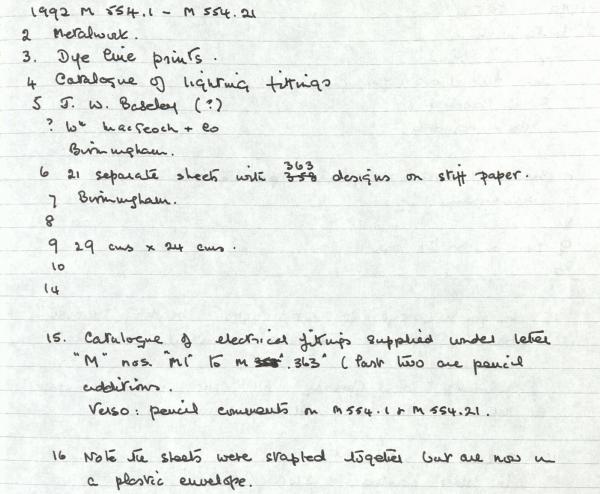 1992 M 554.1 - M 554.21
2 Metalwork.
3. Dye line prints.
4 Catalogue of lighting fittings
5 J. W. Baseley (?)
? Wm MacGeoch + Co
Birmingham.
6 21 separate sheets with 358 363 designs on stiff paper.
7 Birmingham.
8
9 29 cms x 24 cms.
10
14
15. Catalogue of electrical fittings supplied under letter
"M" nos. "M1" to M 358". 363" (last two are pencil
additions.
Verso: pencil comments on M554.1 + M 554.21.
16 Note the sheets were stapled together but are now in
a plastic envelope.